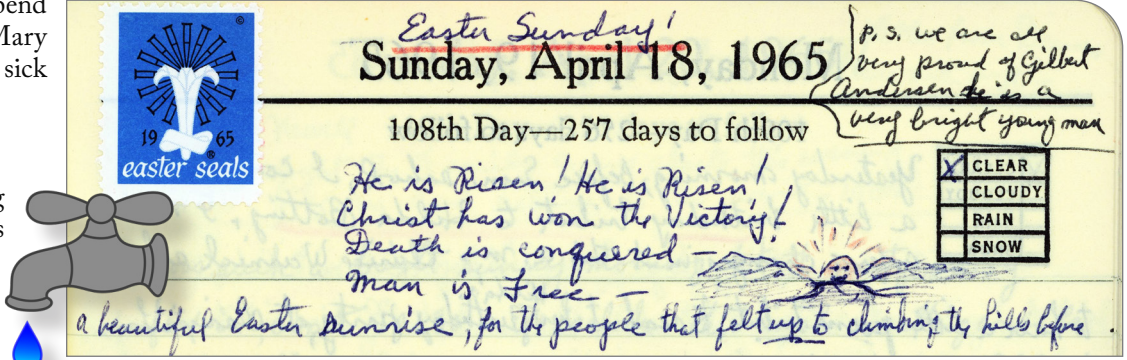 pend
Mary
sick
g
s
©
19 65
®
easter seals
Easter Sunday!
Sunday, April 18, 1965
108th Day—257 days to follow
P.S. we are all
very proud of Gilbert
Andersen he is a
very bright young man
X CLEAR
CLOUDY
RAIN
SNOW
He is Risen! He is Risen!
Christ has won the Victory!
Death is conquered —
Man is Free —
a beautiful Easter sunrise, for the people that felt up to climbing the hills before